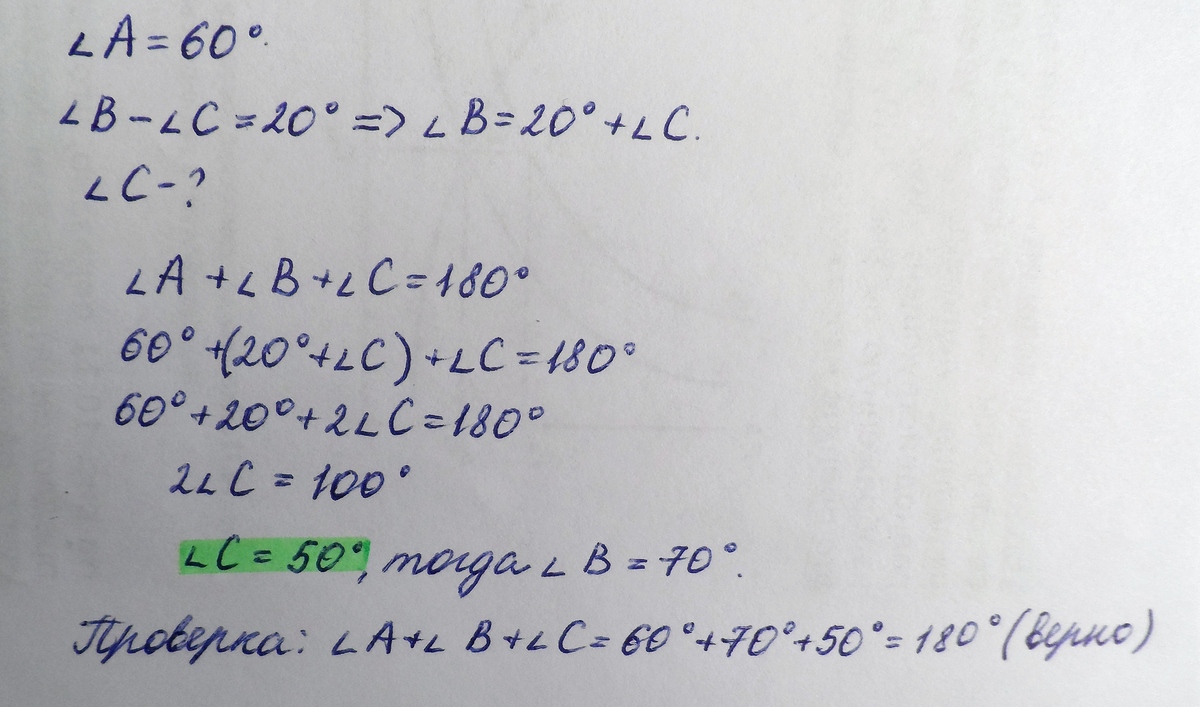 ∠A = 60°.
∠B - ∠C = 20° => ∠B = 20° + ∠C.
∠C - ?
∠A + ∠B + ∠C = 180°
60° + (20° + ∠C) + ∠C = 180°
60° + 20° + 2∠C = 180°
2∠C = 100°
∠C = 50°, тогда ∠B = 70°.
Проверка: ∠A + ∠B + ∠C = 60° + 70° + 50° = 180° (верно)